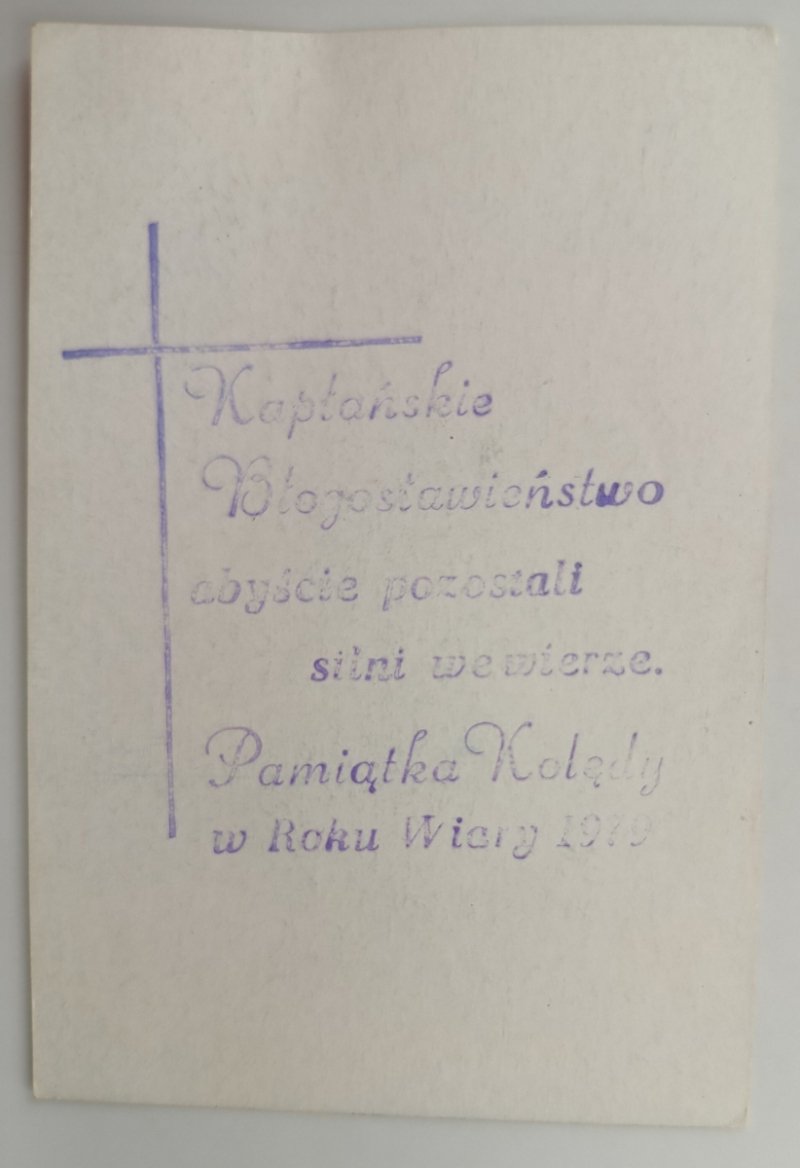 Kapłańskie
Błogosławieństwo
abyście pozostali
silni we wierze.
Pamiątka Kolędy
w Roku Wiary 1979